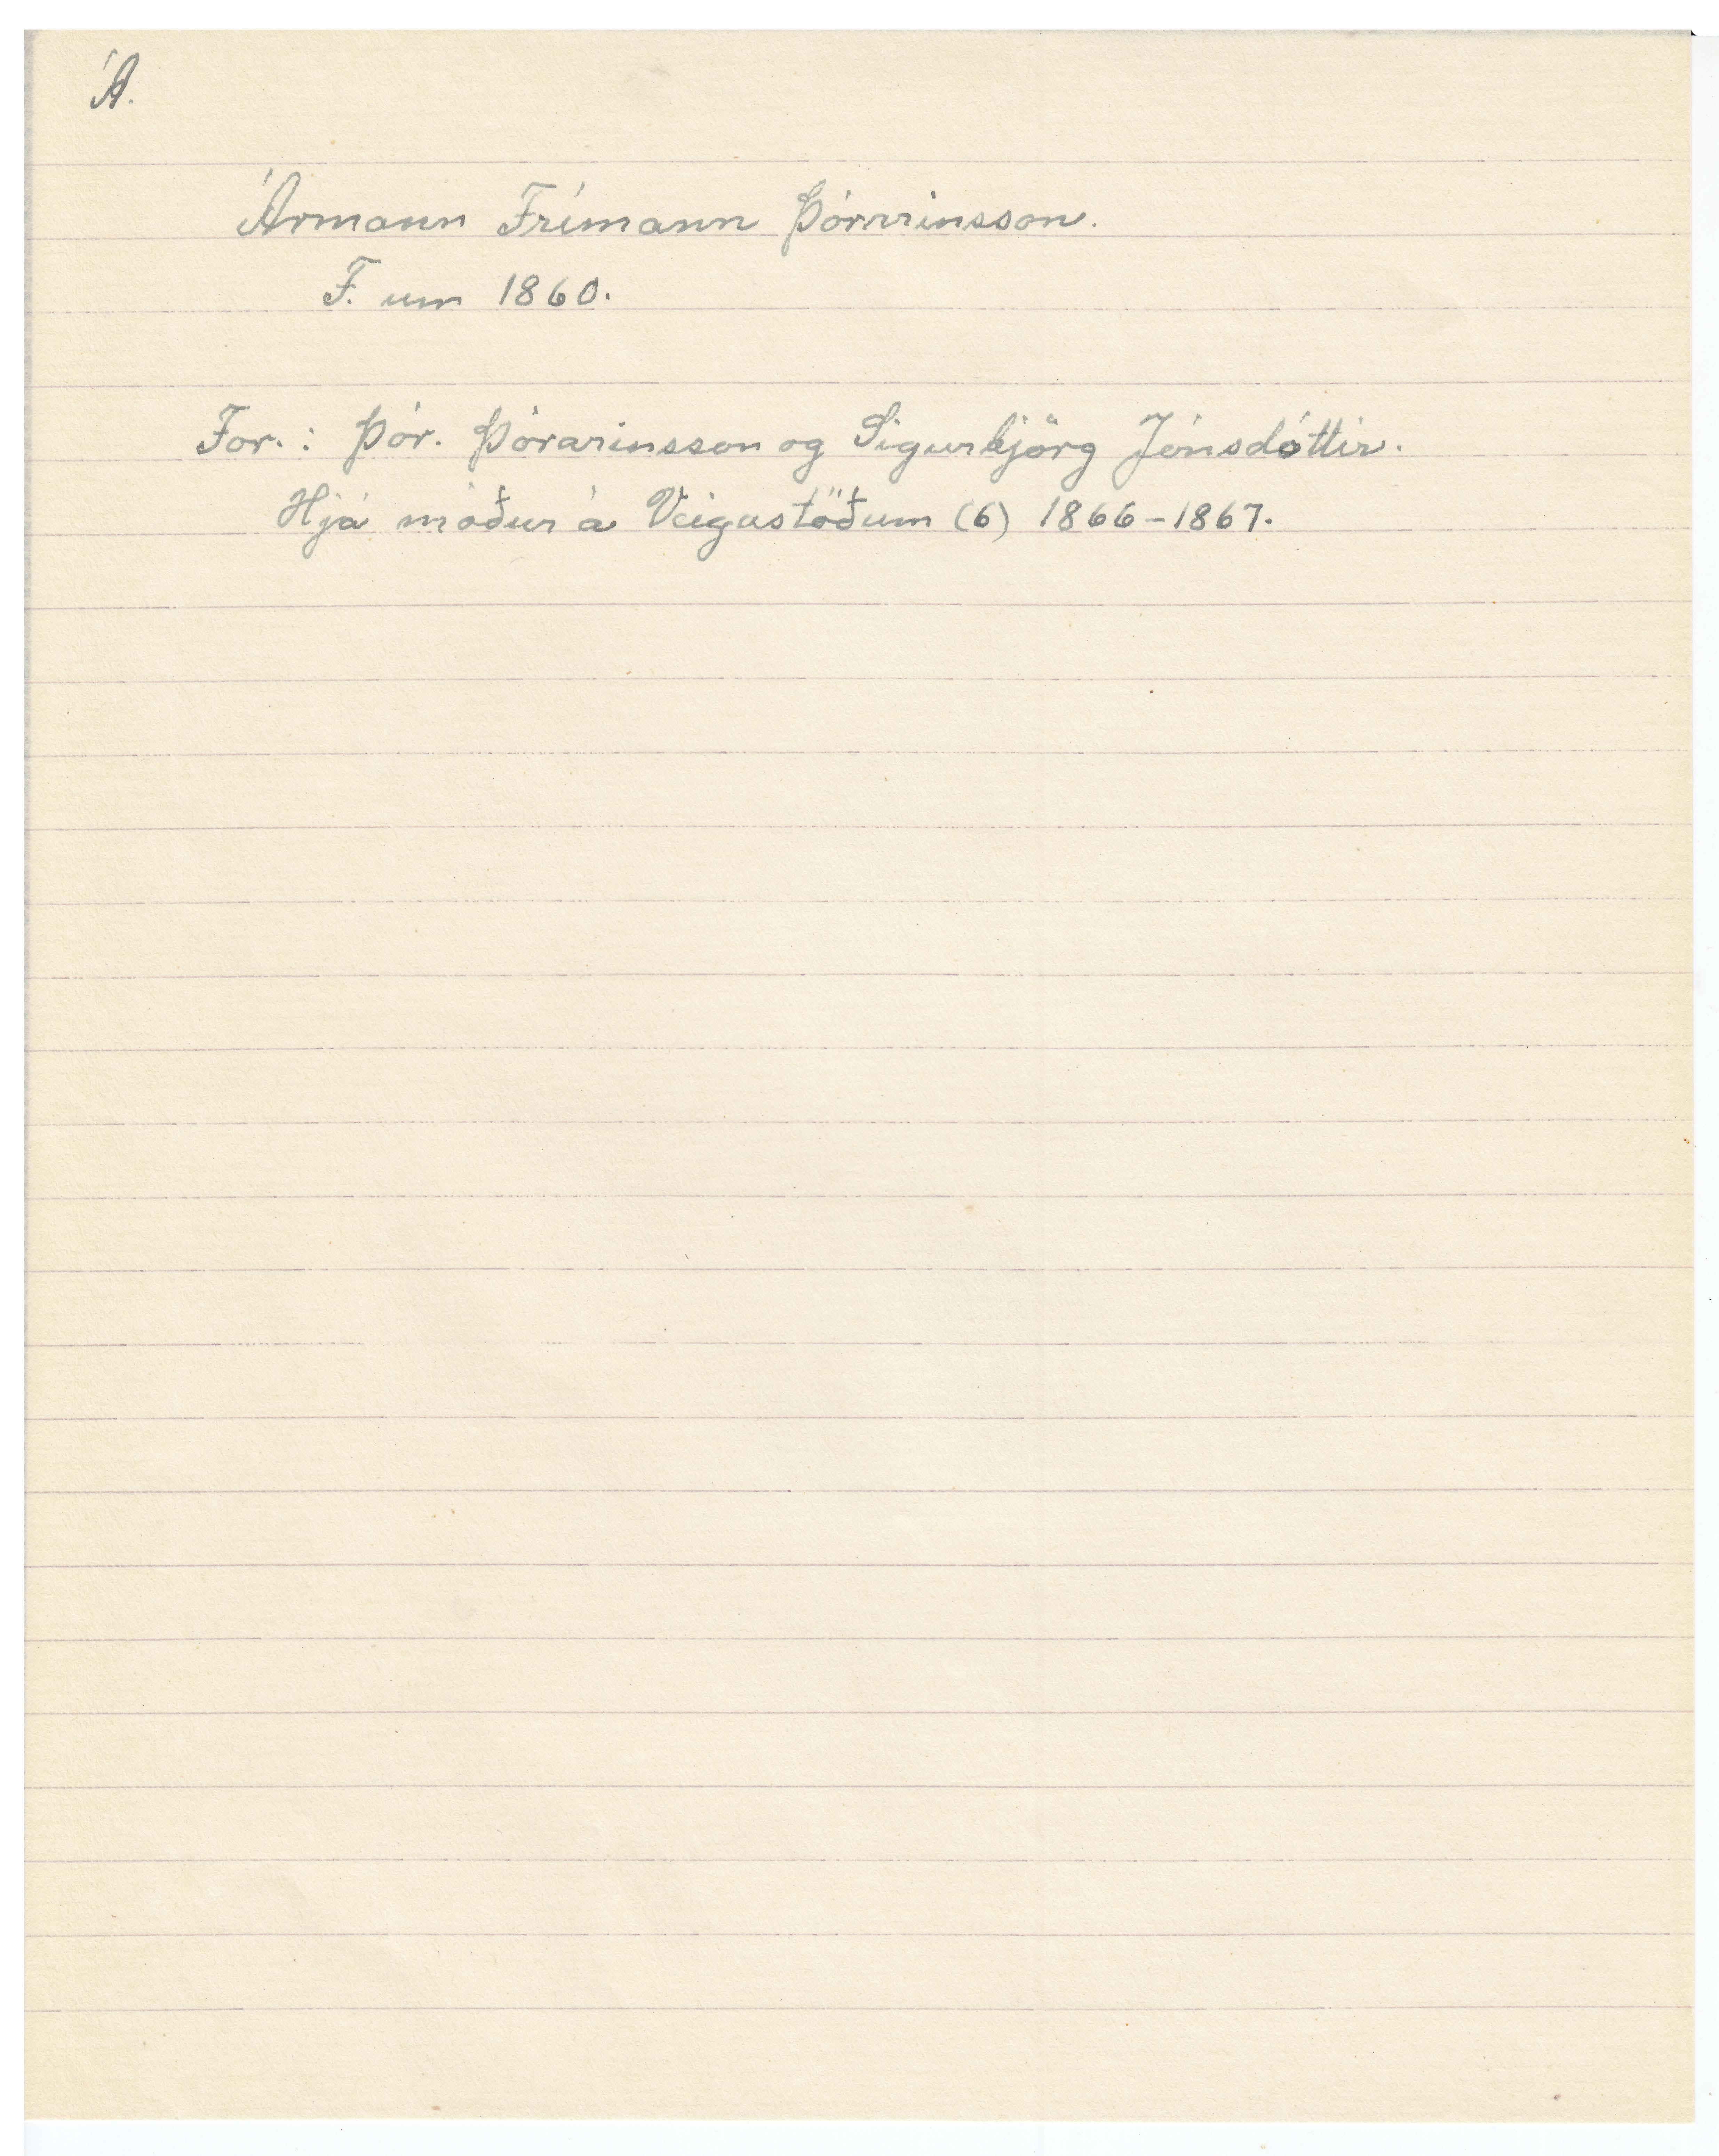 Á.
Ármann Frímann Þórarinsson.
F. um 1860.
For.: Þór. Þórarinsson og Sigurbjörg Jónsdóttir.
Hjá móður á Veigastöðum (6) 1866-1867.